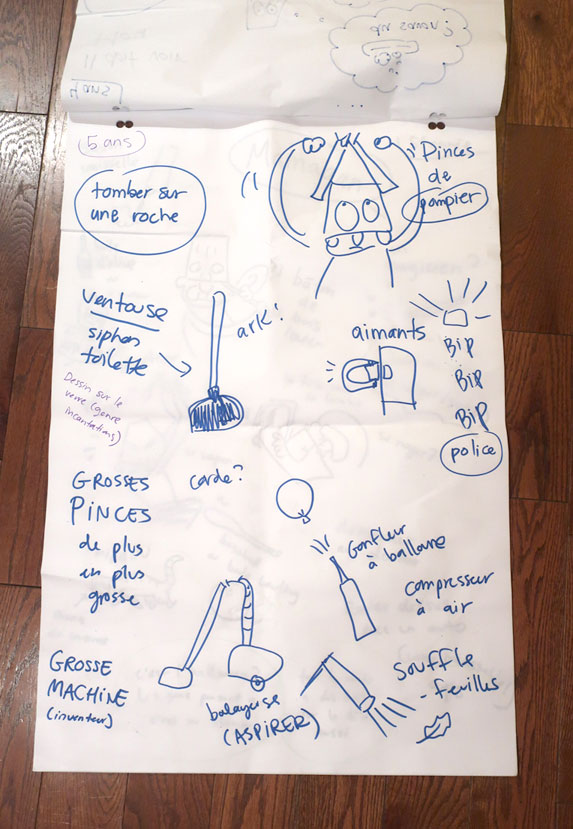 5 ans
tomber sur
une roche
Pinces
de
pompier
ventouse
siphon
toilette
ark!
Dessin sur le
verre (genre
incantations)
aimants
BIP
BIP
BIP
police
GROSSES
PINCES
de plus
en plus
grosse
corde?
Gonfleur
à balloune
compresseur
à air
GROSSE
MACHINE
(inventeur)
balayeuse
(ASPIRER)
souffle
feuilles